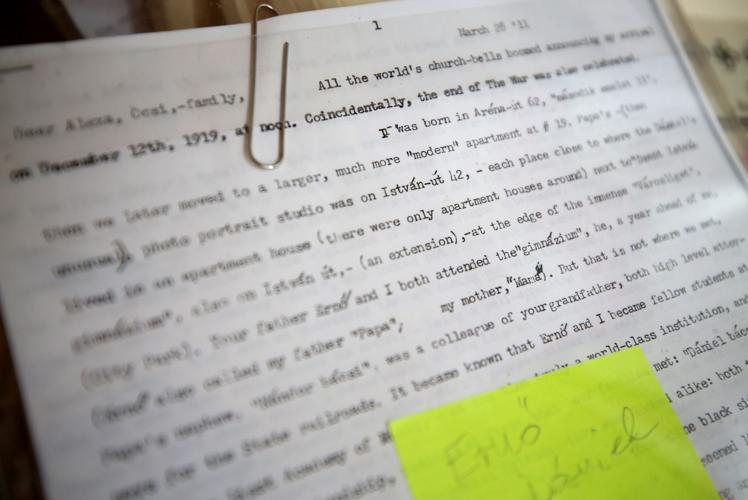 1 March 26 '11
Dear Alexa, Cesi,-family, All the world's church-bells boomed announcing my arrival
on December 12th, 1919, at noon. Coincidentally, the end of The War was also celebrated.
I was born in Aréna-út 62, "második emelet 11",
then we later moved to a larger, much more "modern" apartment at # 19. Papa's,-(then
unusual), photo portrait studio was on István-út 42, - each place close to where the
lived in an apartment house (there were only apartment houses around) next to"Szent István
gimnázium", also on István út,- (an extension),-at the edge of the immense "Városliget",
(City Park). Your father Ernő and I both attended the"gimnázium", he, a year ahead of me,
(Ernő also called my father "Papa", my mother,"Mama"). But that is not where we met,
Papa's nephew, "Nándor bácsi" was a colleague of your grandfather, both high level attor-
neys for the State railroads. It became known that Ernő and I became fellow students at
Academy of a world-class institution, and
met: "Dániel bács
alike: both
black si
seemed
Ernő
Dániel